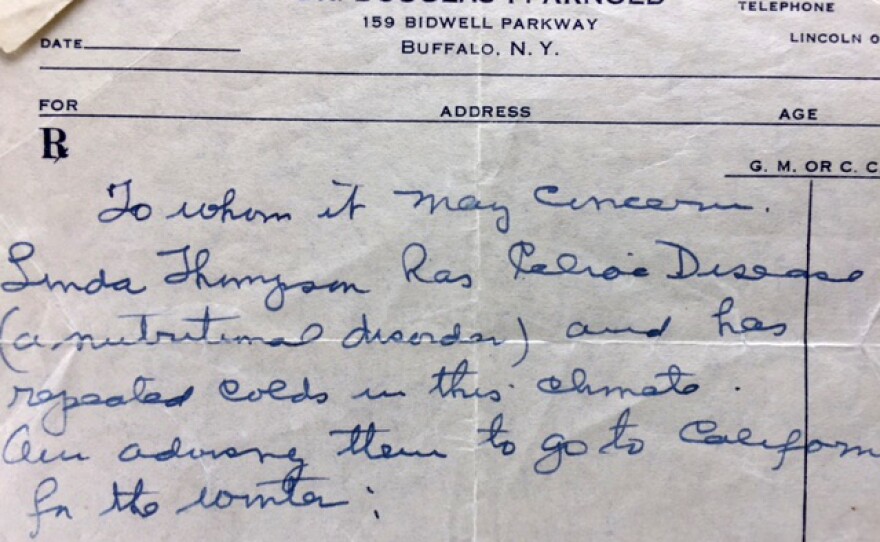 DOUGLAS P. ARNOLD
159 BIDWELL PARKWAY
BUFFALO, N. Y.
TELEPHONE
LINCOLN
DATE
FOR ADDRESS AGE
℞
G. M. OR C. C
To whom it may concern.
Linda Thompson has Celiac Disease
(a nutritional disorder) and has
repeated colds in this climate.
Am advising them to go to Californ
for the winter;